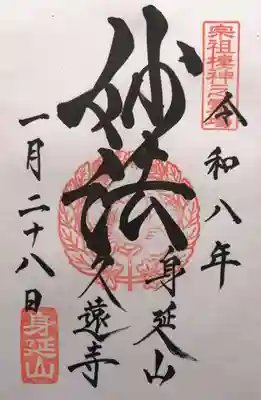 宗祖棲神之霊場
令和八年
妙法
身延山
久遠寺
一月二十八日
身延山